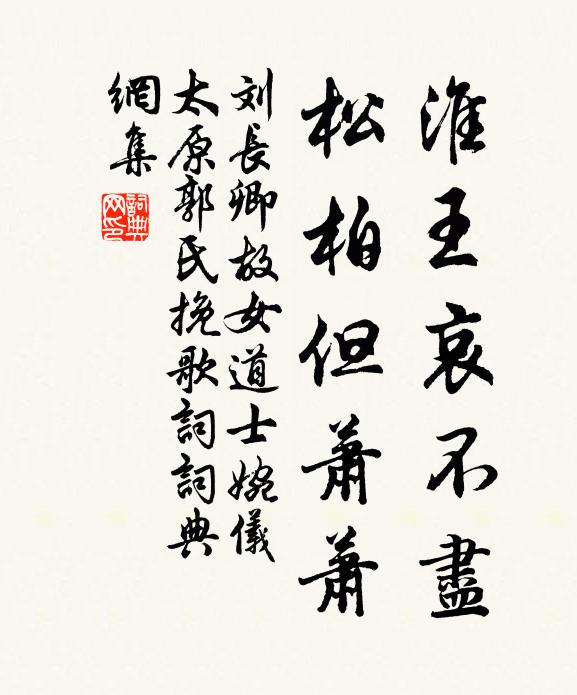 淮王哀不盡
松柏但蕭蕭
刘長卿故女道士婉儀
太原郭氏挽歌詞詞典
網集
詞典网印